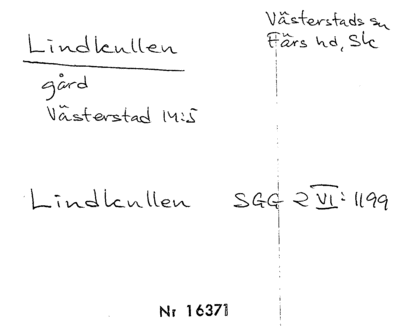 Lindkullen
Västerstads sn
Färs hd, Sk
gård
Västerstad 14:5
Lindkullen SGG 2 VI: 1199
Nr 16371